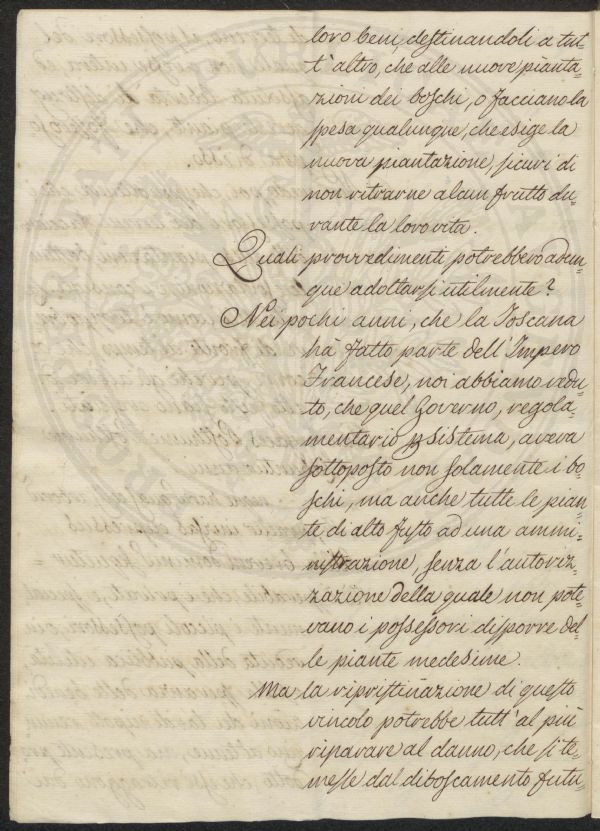 loro beni, destinandoli a tut=
t'altro, che alle nuove pianta=
zioni dei boschi, o facciano la
spesa qualunque, che esige la
nuova piantazione, sicuri di
non ritrarne alcun frutto du=
rante la loro vita.
Quali provvedimenti potrebbero adun=
que adottarsi utilmente?
Nei pochi anni, che la Toscana
ha fatto parte dell'Impero
Francese, noi abbiamo vedu=
to, che quel Governo, regola=
mentario p sistema, aveva
sottoposto non solamente i bo=
schi, ma anche tutte le pian=
te di alto fusto ad una ammi=
nistrazione, senza l'autoriz=
zazione della quale non pote=
vano i possessori disporre del=
le piante medesime.
Ma la ripristinazione di questo
vincolo potrebbe tutt'al più
riparare al danno, che si te=
messe dal diboscamento futu=